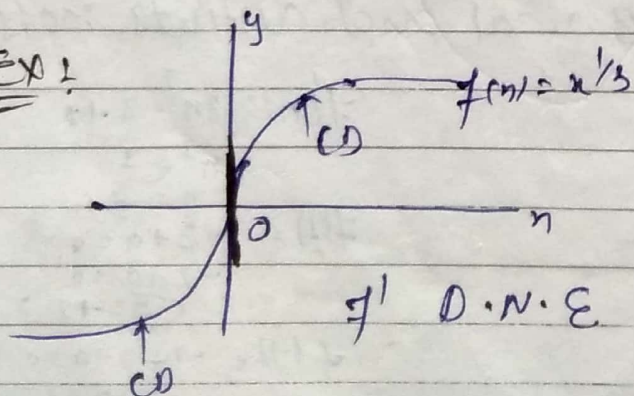 Ex!
y
f(n) = x^1/3
CD
O
n
f' D.N.E
CD